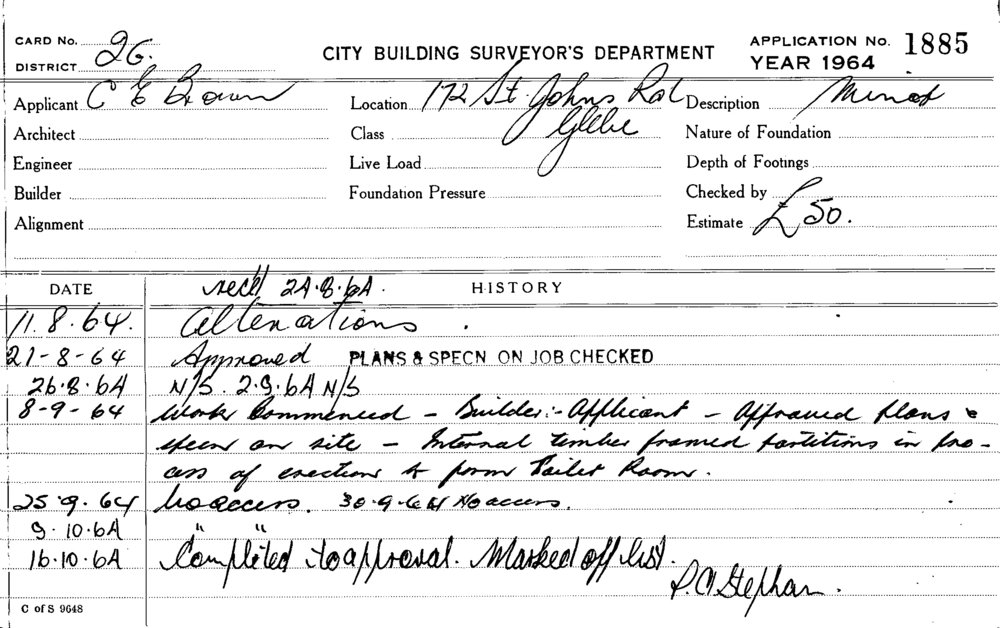 CARD No. 26.
DISTRICT
CITY BUILDING SURVEYOR'S DEPARTMENT
APPLICATION No. 1885
YEAR 1964
Applicant C E Brown
Location 172 St. Johns Rd Glebe
Description Minor
Architect
Class
Nature of Foundation
Engineer
Live Load
Depth of Footings
Builder
Foundation Pressure
Checked by
Alignment
Estimate £50.
DATE
recd 24.8.64.
HISTORY
11.8.64. alterations.
21-8-64 Approved PLANS & SPECN ON JOB CHECKED
26.8.64 N/S. 2.9.64 N/S
8-9-64 Work Commenced - Builder:- Applicant - Approved plans &
specn on site - Internal timber framed partitions in pro-
cess of erection to form Toilet Room.
25.9.64 No access. 30-9-64 No access.
9.10.64 " "
16.10.64 Completed to approval. Marked off list.
Stephan.
C of S 9648